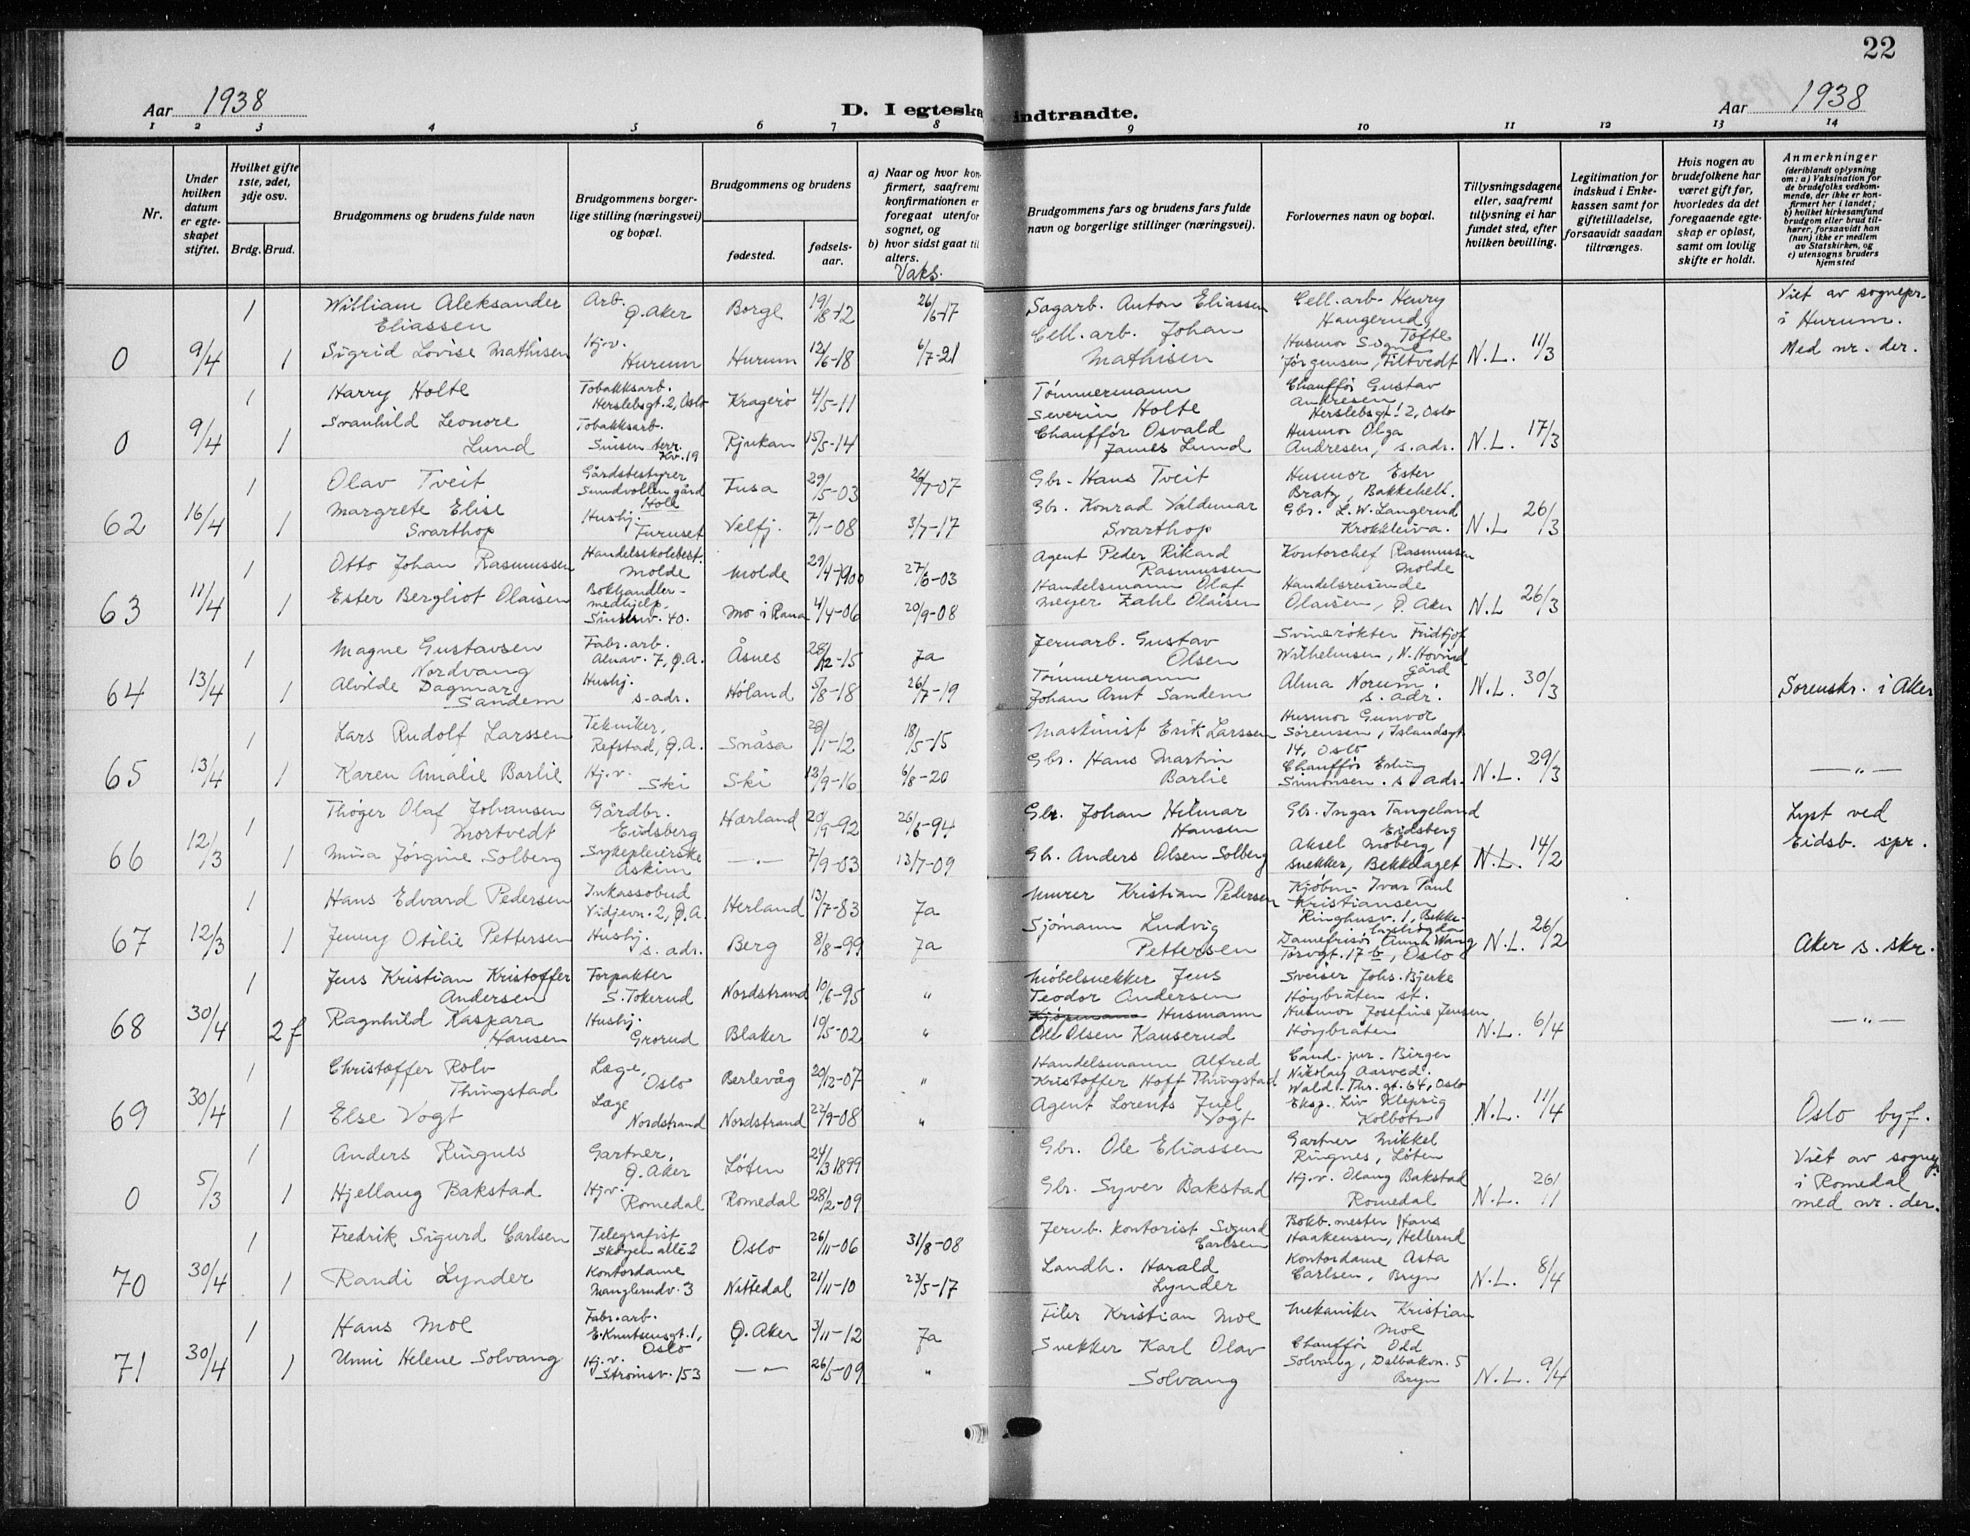 22
Aar 1938
D. I egteska
indtraadte.
Aar 1938
1 2 3 4 5 6 7 8 9 10 11 12 13 14
Nr.
Under hvilken datum er egteskapet stiftet.
Hvilket gifte 1ste, 2det, 3dje osv.
Brdg. Brud.
Brudgommens og brudens fulde navn
Brudgommens borgerlige stilling (næringsvei) og bopæl.
Brudgommens og brudens
fødested.
fødselsaar.
a) Naar og hvor konfirmert, saafremt konfirmationen er foregaat utenfor sognet, og
b) hvor sidst gaat til alters.
Vaks.
Brudgommens fars og brudens fars fulde navn og borgerlige stillinger (næringsvei).
Forlovernes navn og bopæl.
Tillysningsdagene eller, saafremt tillysning ei har fundet sted, efter hvilken bevilling.
Legitimation for indskud i Enkekassen samt for giftetilladelse, forsaavidt saadan tiltrænges.
Hvis nogen av brudefolkene har været gift før, hvorledes da det foregaaende egteskap er opløst, samt om lovlig skifte er holdt.
Anmerkninger (deriblandt oplysning om: a) Vaksination for de brudefolks vedkommende, der ikke er konfirmert her i landet; b) hvilket kirkesamfund brudgom eller brud tilhører, forsaavidt han (hun) ikke er medlem av Statskirken, og c) utensogns bruders hjemsted
1 William Aleksander Eliassen Arb. Ø. Aker Borge 19/8-12 26/6-17 Sagarb. Anton Eliassen Cell.arb. Henry Haugerud, Tofte Viet av sognepr. i Hurum. Med nr. der.
0 9/4 1 Sigrid Lovise Mathisen Hj.v. Hurum Hurum 12/6-18 6/7-21 Cell.arb. Johan Mathisen Husmor Jørgensen, Filtvedt N.L. 11/3
1 Harry Holte Tobakksarb. Herslebsgt. 2, Oslo Kragerø 4/5-11 Tømmermann Severin Holte Chauffør Gustav Andresen Herslebsgt. 2, Oslo
0 9/4 1 Svanhild Leonore Lund Tobakksarb. Sinsen terr. Kv. 19 Rjukan 15/5-14 Chauffør Osvald James Lund Husmor Olga Andresen, s. adr. N.L. 17/3
1 Olav Tveit Gårdsbestyrer Sundvollen gård Hole Fusa 29/5-03 26/7-07 Gbr. Hans Tveit Husmor Ester Braty, Bakkehell.
62 16/4 1 Margrete Elise Svarthop Hushj. Furuset Velfj. 7/1-08 3/7-17 Gbr. Konrad Valdemar Svarthop Gbr. L.W. Langerud Krokkleiva. N.L 26/3
1 Otto Johan Rasmussen Handelsskolebest. Molde Molde 29/4-1900 27/6-03 Agent Peder Rikard Rasmussen Kontorchef Rasmussen Molde
63 11/4 1 Ester Bergliot Olaisen Bokhandlermedhjelp. Sinsenv. 40. Mo i Rana 4/4-06 20/9-08 Handelsmann Olaf Meyer Zahl Olaisen Handelsreisende Olaisen, Ø. Aker N.L 26/3
1 Magne Gustavsen Nordvang Fabr.arb. Alnav. 7, Ø.A. Åsnes 28/12-15 Ja Jernarb. Gustav Olsen Svinerøkter Fridtjof Wilhelmsen, N. Hovind gård
64 13/4 1 Alvilde Dagmar Sandem Hushj. s. adr. Høland 5/8-18 26/7-19 Tømmermann Johan Arnt Sandem Alma Norum s. adr. N.L. 30/3 Sorenskr. i Aker
1 Lars Rudolf Larssen Tekniker, Refstad, Ø.A. Snåsa 28/1-12 18/5-15 Maskinist Erik Larssen Husmor Gunvor Sørensen, Islandsgt. 14, Oslo
65 13/4 1 Karen Amalie Barlie Hj.v. Ski Ski 12/9-16 6/8-20 Gbr. Hans Martin Barlie Chauffør Erling Simonsen. s. adr. N.L. 29/3 —„—
1 Thøger Olaf Johansen Mortvedt Gårdbr. Eidsberg Hærland 20/9-92 26/6-94 Gbr. Johan Hilmar Hansen Gbr. Ingar Tangeland Eidsberg Lyst ved Eidsb. spr.
66 12/3 1 Mina Jørgine Solberg Sykepleierske Askim —„— 7/9-03 13/7-09 Gbr. Anders Olsen Solberg Aksel Moberg, snekker, Bekkelaget N.L. 14/2
1 Hans Edvard Pedersen Inkassobud Vidjevn. 2, Ø.A. Herland 13/7-83 Ja Murer Kristian Pedersen Kjøbm. Ivar Paul Kristiansen Ringhusv. 1, Bekkelagshøgda
67 12/3 1 Jenny Otilie Pettersen Hushj. s. adr. Berg 8/8-99 Ja Sjømann Ludvig Pettersen Damefrisør Anna Wang Torvgt. 17 b, Oslo N.L. 26/2 Aker s. skr.
1 Jens Kristian Kristoffer Andersen Forpakter S. Tokerud Nordstrand 10/6-95 „ Møbelsnekker Jens Teodor Andersen Sveiser Johs. Bjerke Høybråten st.
68 30/4 2 f Ragnhild Kaspara Hansen Hushj. Grorud Blaker 19/5-02 „ Husmann Ole Olsen Kauserud Husmor Josefine Jensen Høybråten N.L. 6/4 —„—
1 Christoffer Rolv Thingstad Læge, Oslo Berlevåg 20/12-07 „ Handelsmann Alfred Kristoffer Hoff Thingstad Cand. jur. Birger Nikolay Aarved. Wald. Thr. gt. 64, Oslo
69 30/4 1 Else Vogt Læge Nordstrand Nordstrand 22/9-08 „ Agent Lorents Juel Vogt Eksp. Liv Klepzig Kolbotn N.L. 11/4 Oslo byf.
1 Anders Ringnes Gartner, Ø. Aker Løten 24/3 1899 Gbr. Ole Eliassen Gartner Mikkel Ringnes, Løten Viet av sognepr. i Romedal med nr. der.
0 5/3 1 Hjellaug Bakstad Hj.v. Romedal Romedal 28/2-09 Gbr. Syver Bakstad Hj.v. Olaug Bakstad Romedal N.L. 26/1
1 Fredrik Sigurd Carlsen Telegrafist Skøyen allé 2 Oslo 26/11-06 31/8-08 Jernb. kontorist Sigurd Carlsen Bokb. mester Hans Haakensen, Hellerud
70 30/4 1 Randi Lynder Kontordame Manglerudv. 3 Nittedal 21/11-10 23/5-17 Landh. Harald Lynder Kontordame Asta Carlsen, Bryn N.L. 8/4
1 Hans Moe Fabr.arb. E. Knutsensgt. 1, Oslo Ø. Aker 3/11-12 Ja Filer Kristian Moe Mekaniker Kristian Moe
71 30/4 1 Unni Helene Solvang Hj.v. Strømsv. 153 —„— 26/5-09 „ Snekker Karl Olav Solvang Chauffør Odd Solvang, Dalbakkv. 5 Bryn N.L. 9/4